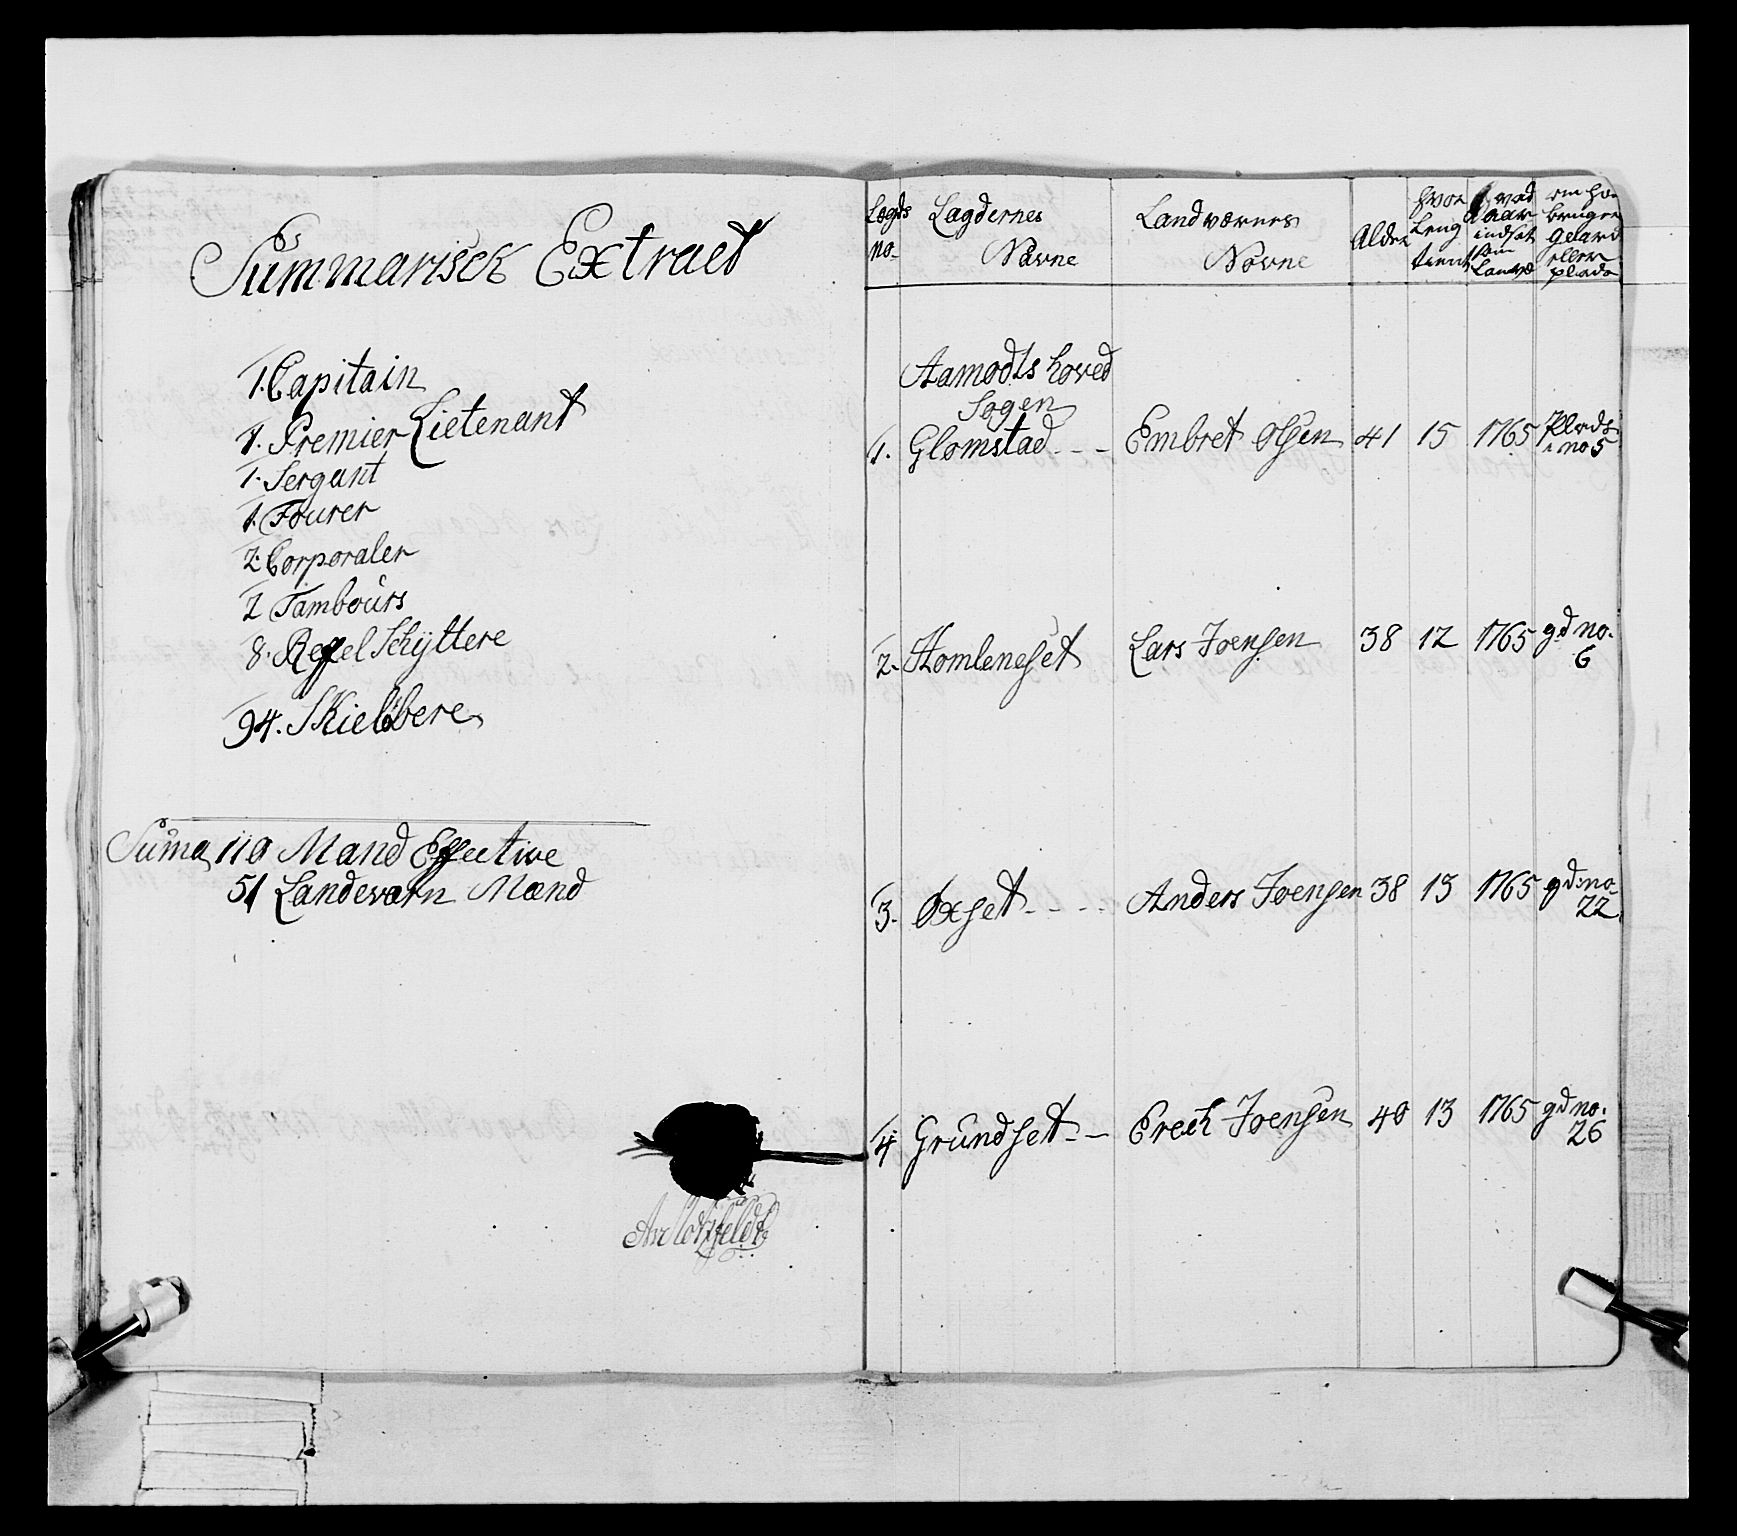 Summarisck Extract
1. Capitain
1. Premier Lietenant
1. Sergant
1. Fourer
2. Corporaler
2 Tambours
8. Reffel Schyttere
94. Skielöbere
Suma 110 Mand Effective
51 Landeværn Mænd
Lægds no.
Lægdernes Navne
Landværnes Navne
Alder
hvor Leng tient
hvad Aaar indsat som Landv
om hand bruger Gelard eller plads
Aamodts hoved
Sogen
1. Glomstad - - - Embret Olsen 41 15 1765 Plads i no 5
2. Homleneset Lars Joensen 38 12 1765 gd no. 6
3. Oxset - - - - Anders Joensen 38 13 1765 gd: no 22
4. Grundset - - Erech Joensen 40 13 1765 gd no. 26